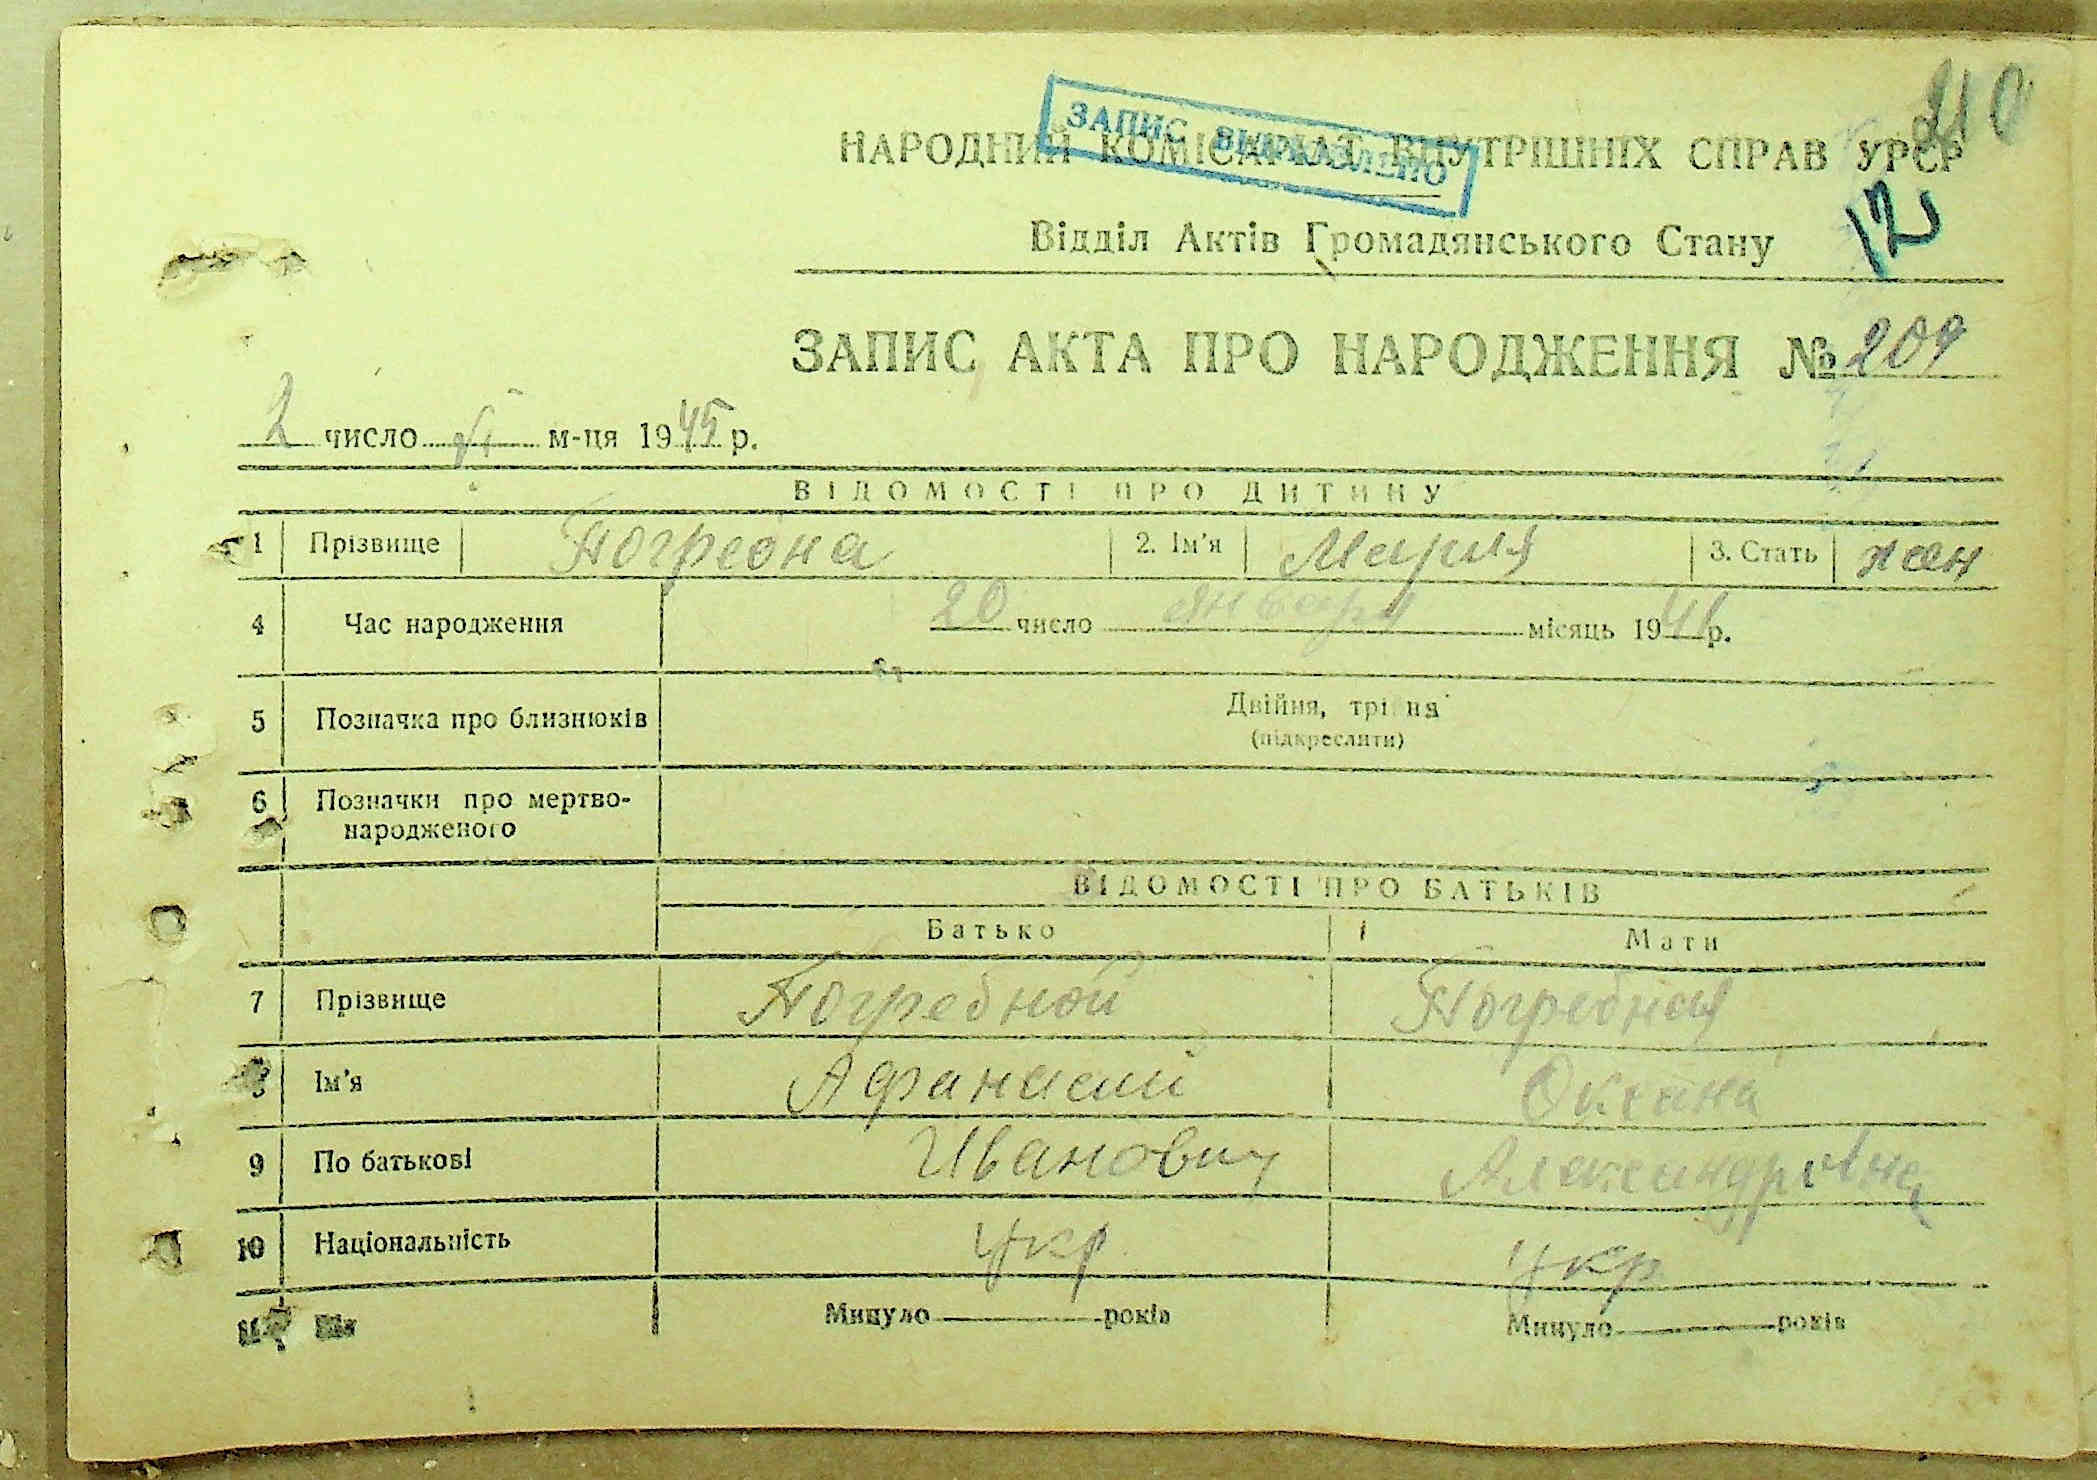 210
ЗАПИС ВІДНОВЛЕНО
НАРОДНИЙ КОМІСАРІАТ ВНУТРІШНІХ СПРАВ УРСР
12
Відділ Актів Громадянського Стану
ЗАПИС АКТА ПРО НАРОДЖЕННЯ № 209
2 число VI м-ця 1945 р.
ВІДОМОСТІ ПРО ДИТИНУ
1 Прізвище Погребна 2. Ім'я Мария 3. Стать жен
4 Час народження 20 число январи місяць 1941 р.
5 Позначка про близнюків Двійня, трійня
(підкреслити)
6 Позначки про мертво-
народженого
ВІДОМОСТІ ПРО БАТЬКІВ
Батько Мати
7 Прізвище Погребной Погребная
8 Ім'я Афанасий Оксана
9 По батькові Иванович Александровна
10 Національність укр укр
11 Вік Минуло років Минуло років